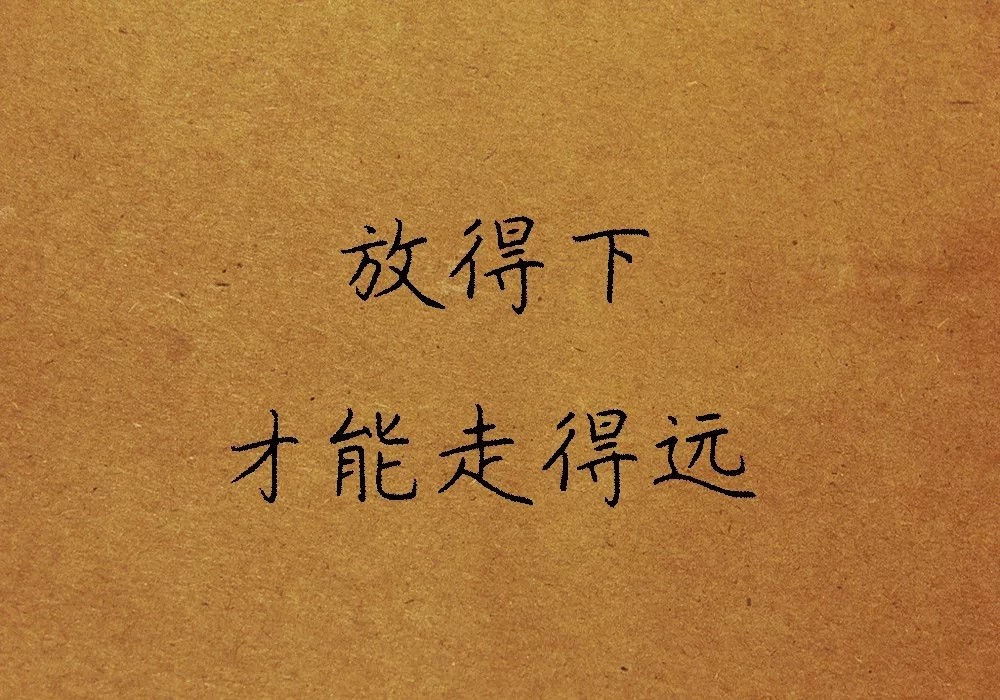 放得下
才能走得远